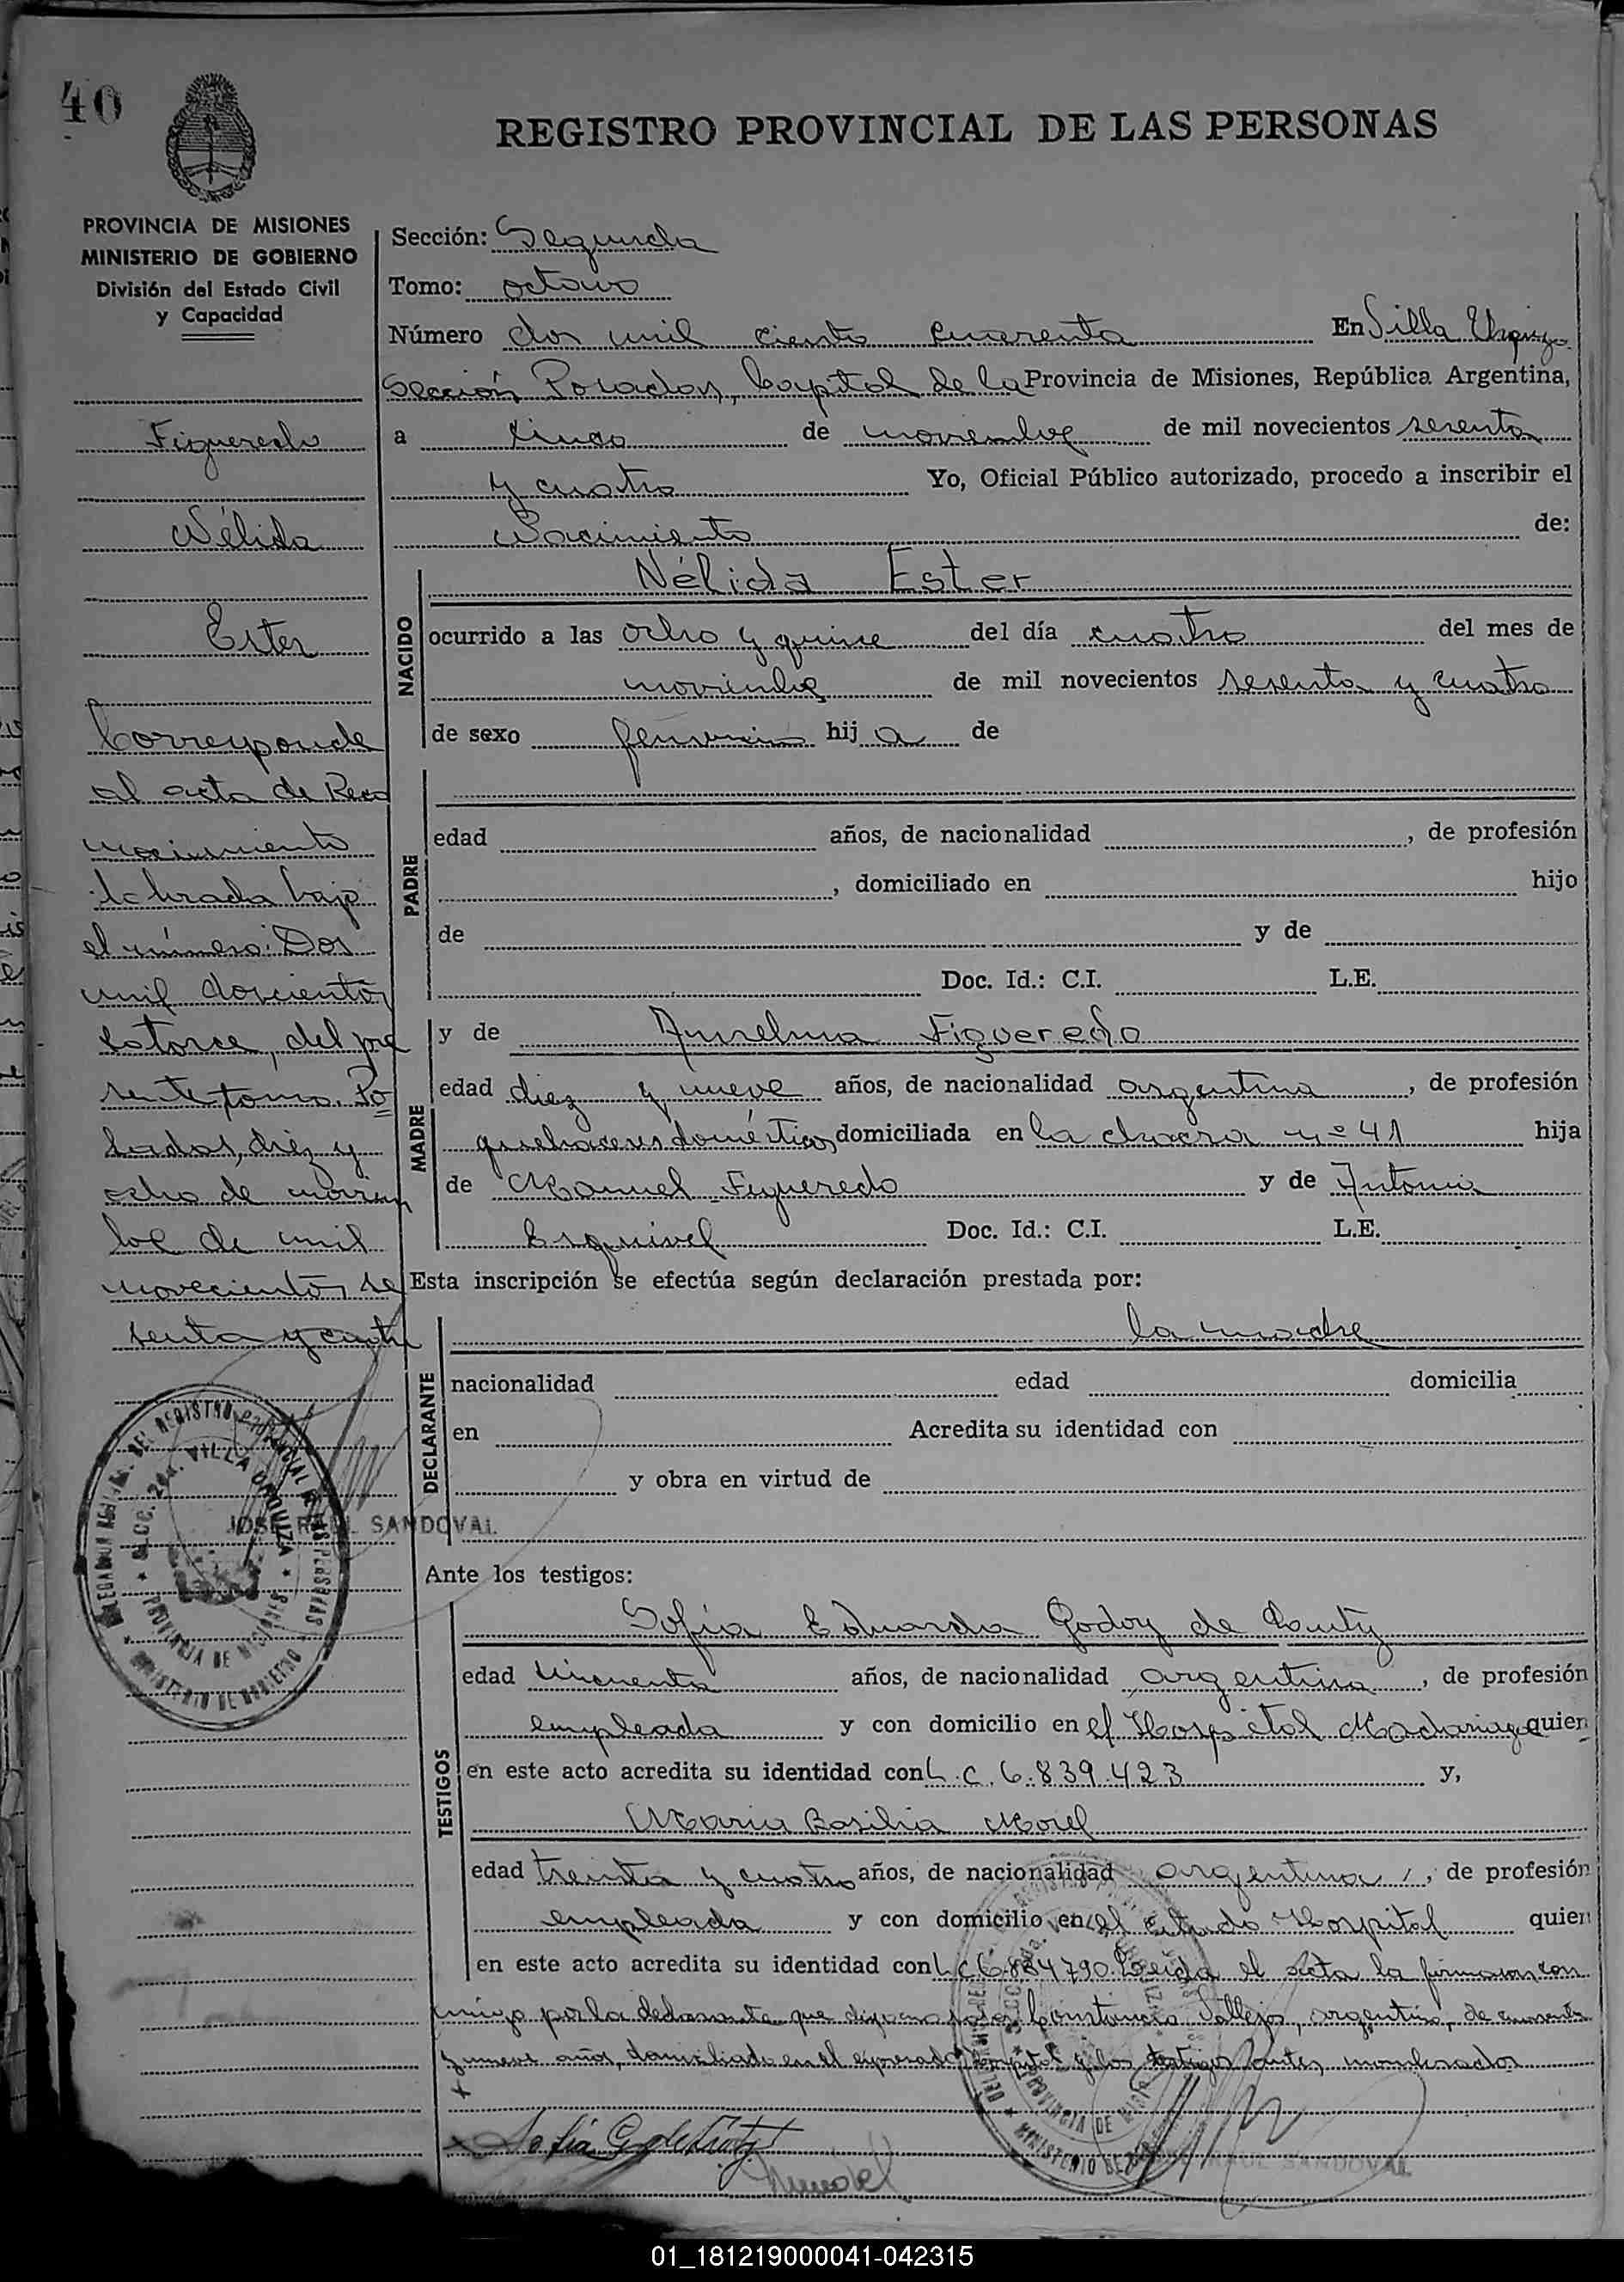 40
REGISTRO PROVINCIAL DE LAS PERSONAS
PROVINCIA DE MISIONES
MINISTERIO DE GOBIERNO
División del Estado Civil
y Capacidad
Figueredo
Nélida
Ester
Corresponde
al acta de Reco
nocimiento
labrada bajo
el número: Dos
mil doscientos
catorce, del pre
sente tomo. Po
sadas, diez y
ocho de noviem
bre de mil
novecientos se
senta y cuatro
JOSE RAUL SANDOVAL
DEL REGISTRO PROVINCIAL DE LAS PERSONAS
SECC. 2da. VILLA URQUIZA
PROVINCIA DE MISIONES
MINISTERIO DE GOBIERNO
Sección: Segunda
Tomo: octavo
Número dos mil ciento cuarenta En Villa Urquiza
Sección Posadas, Capital de la Provincia de Misiones, República Argentina,
a cinco de noviembre de mil novecientos sesenta
y cuatro Yo, Oficial Público autorizado, procedo a inscribir el
Nacimiento de:
NACIDO
Nélida Ester
ocurrido a las ocho y quince del día cuatro del mes de
noviembre de mil novecientos sesenta y cuatro
de sexo femenino hij a de
PADRE
edad años, de nacionalidad , de profesión
, domiciliado en hijo
de y de
Doc. Id.: C.I. L.E.
MADRE
y de Anselma Figueredo
edad diez y nueve años, de nacionalidad argentina , de profesión
quehaceres domésticos domiciliada en la chacra nº 41 hija
de Manuel Figueredo y de Antonia
Esquivel Doc. Id.: C.I. L.E.
Esta inscripción se efectúa según declaración prestada por:
DECLARANTE
la madre
nacionalidad edad domicilia
en Acredita su identidad con
y obra en virtud de
Ante los testigos:
TESTIGOS
Sofía Eduarda Godoy de
edad cincuenta años, de nacionalidad argentina , de profesión
empleada y con domicilio en el Hospital Madariaga quien
en este acto acredita su identidad con L.C. 6.839.423 y,
María Basilia Morel
edad treinta y cuatro años, de nacionalidad argentina , de profesión
empleada y con domicilio en el citado Hospital quien
en este acto acredita su identidad con L.C. Leida el acta la firmaron con
migo por la declarante que dijo no Constancio Vallejos, argentino, de cuarenta
y nueve años, domiciliado en el expresado Hospital y los testigos antes nombrados
Sofía G de
Morel
RAUL SANDOVAL
01_181219000041-042315